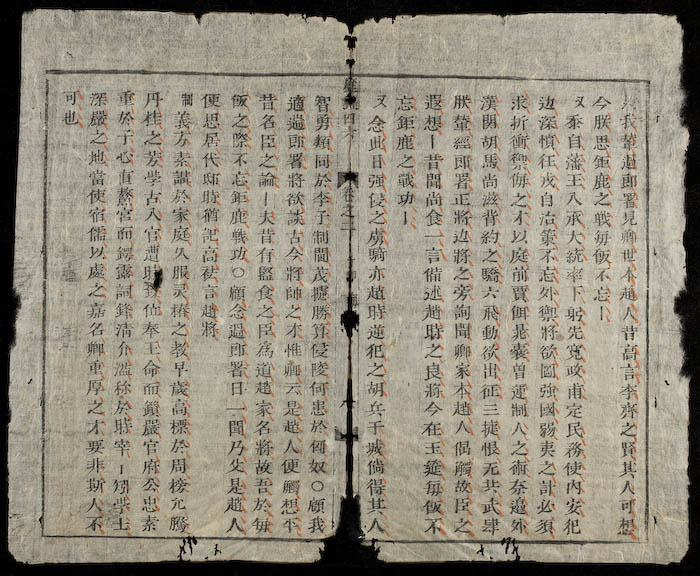 我輦過郎署見卿世本趙人昔嘗言李齊之賢其人可想
今朕思鉅鹿之戰每飯不忘
又 黍自藩王入承大統率下躬先寬政甫定民務使內安犯
邊深憤徃戎自治策不忘外禦將欲圖強國弱夷之計必須
求折衝禦侮之才以庭前賈餌晁囊曽運制人之術奈邉外
漢関胡馬尚滋背約之驕六飛動欲出征三捷恨无共武肆
朕輦經郎署正將边將之旁詢聞卿家本趙人偶觸故臣之
遐想一昔聞尚食一言備述趙時之良將今在玉筵每飯不
忘鉅鹿之戰功
又 念此日強侵之虜騎亦趙時逆犯之胡兵干城倘得其人
智勇頪同於李子制閫茂攄勝算侵陵何患於匈奴○顧我
適過郎署將欲談古今將帥之才惟卿云是趙人便觸想平
昔名臣之論一夫昔有監食之臣為道趙家名將故吾於每
飯之際不忘鉅鹿戰功○顧念過郎署日一聞乃父是趙人
便思居代邸時猶記高祛言趙將
制 義方素講於家庭久服灵椿之教早歲高標於周榜允騰
丹桂之芳學古入官遭時 仙奉王命而鎖嚴官府公忠素
重於于心直鰲宮而鍔露詞鋒清介濫称於時宰一矧學士
深嚴之地當使宿儒以處之嘉名卿重厚之才要非斯人不
可也